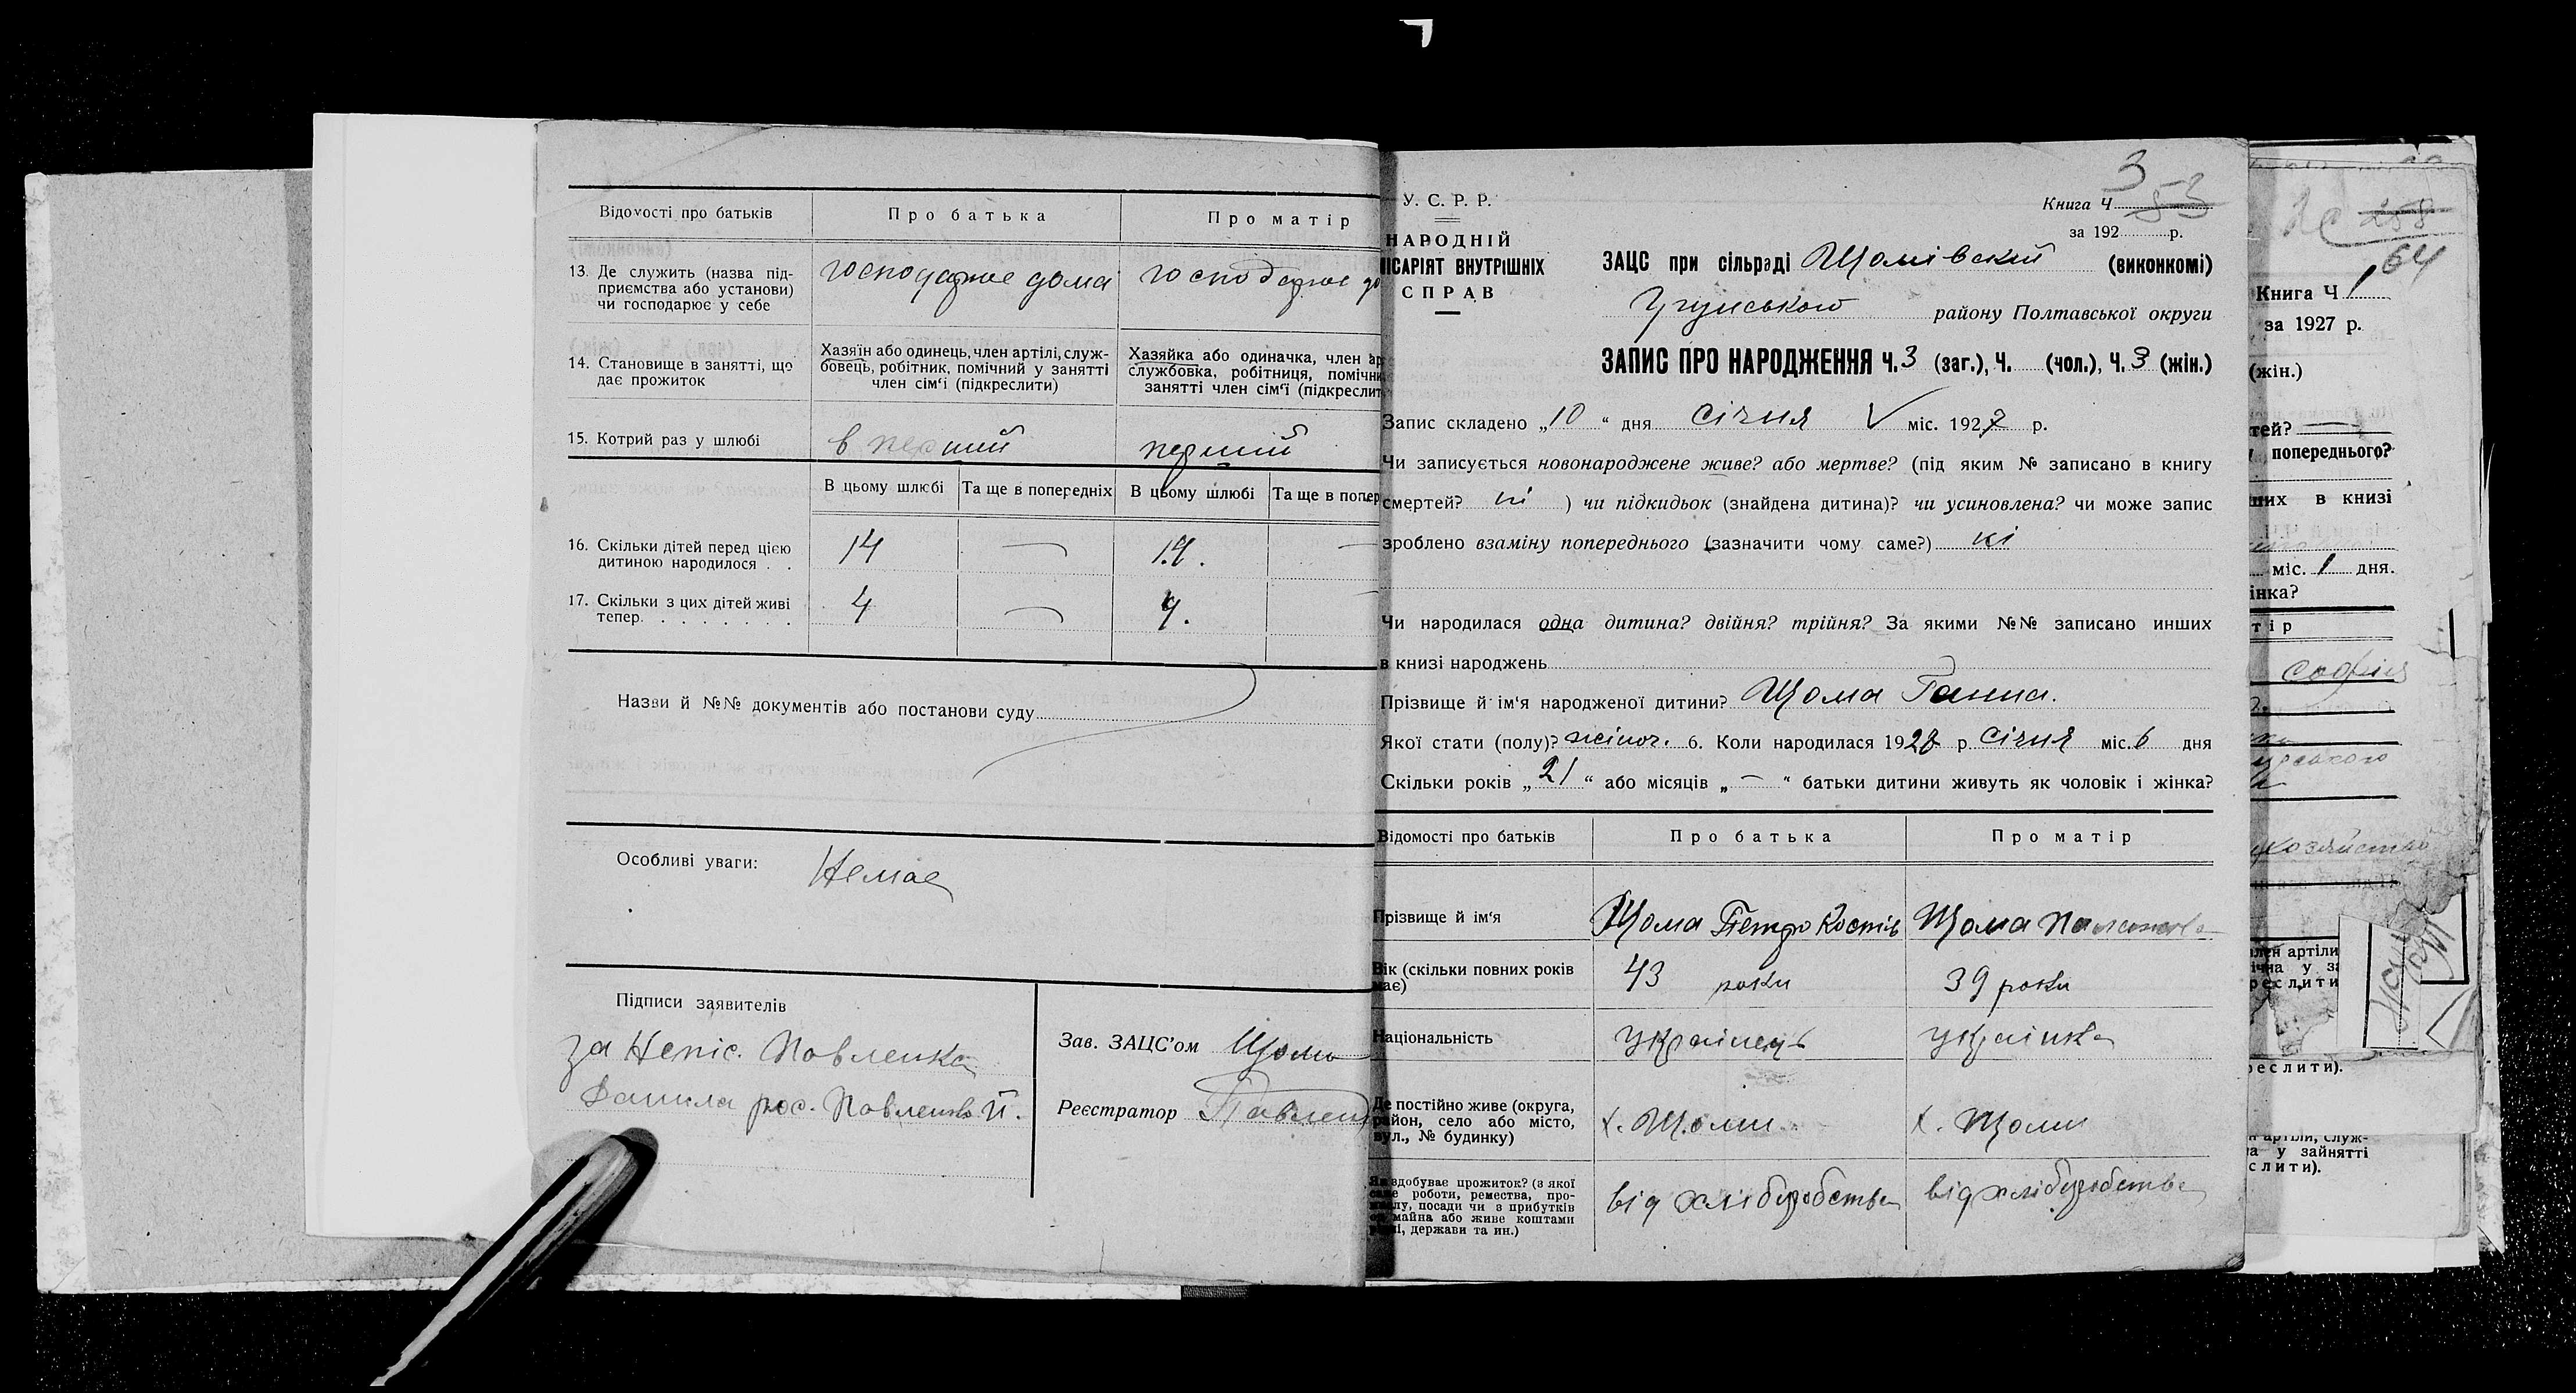 Відомості про батьків
Про батька
Про матір
13. Де служить (назва під-
приємства або установи)
чи господарює у себе
господарює дома
господарює до
14. Становище в занятті, що
дає прожиток
Хазяїн або одинець, член артілі, служ-
бовець, робітник, помічний у занятті
член сім'ї (підкреслити)
Хазяйка або одиначка, член ар
службовка, робітниця, помічни
занятті член сім'ї (підкреслит
15. Котрий раз у шлюбі
в перший
перший
В цьому шлюбі
Та ще в попередніх
В цьому шлюбі
Та ще в попер
16. Скільки дітей перед цією
дитиною народилося . .
14
—
14.
—
17. Скільки з цих дітей живі
тепер. . . . . . . .
4
—
4.
Назви й №№ документів або постанови суду
Особливі уваги:
Немає
Підписи заявителів
за Непис. Павленка
Данила рос. Павленко П.
Зав. ЗАЦС'ом Щома
Реєстратор Павлен
У. С. Р. Р.
НАРОДНІЙ
ІСАРІЯТ ВНУТРІШНІХ
СПРАВ
3
Книга Ч 53
за 192 р.
ЗАЦС при сільраді Щомівский (виконкомі)
району Полтавської округи
ЗАПИС ПРО НАРОДЖЕННЯ Ч. 3 (заг.), Ч. (чол.), Ч. 3 (жін.)
Запис складено „10“ дня січня V міс. 1927 р.
Чи записується новонароджене живе? або мертве? (під яким № записано в книгу
смертей? ні ) чи підкидьок (знайдена дитина)? чи усиновлена? чи може запис
зроблено взаміну попереднього (зазначити чому саме?) ні
Чи народилася одна дитина? двійня? трійня? За якими №№ записано инших
в книзі народжень
Прізвище й ім'я народженої дитини? Щома Ганна.
Якої стати (полу)? жіноч. 6. Коли народилася 1927 р січня міс. 6 дня
Скільки років „21“ або місяців „—“ батьки дитини живуть як чоловік і жінка?
Відомості про батьків
Про батька
Про матір
Прізвище й ім'я
Щома Петро Костів
Щома
Вік (скільки повних років
має)
43 роки
39 роки
Національність
Українець
Українка
Де постійно живе (округа,
район, село або місто,
вул., № будинку)
х. Щоми
х. Щоми
Як здобуває прожиток? (з якої
саме роботи, ремества, про-
мислу, посади чи з прибутків
від майна або живе коштами
рідні, держави та ин.)
від хліборобства
від хліборобства
258
64
Книга Ч 1
за 1927 р.
(жін.)
тей?
попереднього?
ших в книзі
міс. 1 дня.
інка?
тір
Софія
хозяйство
лен артіли
ічна у за
реслити
реслити).
н артіли, служ-
на у зайнятті
слити).